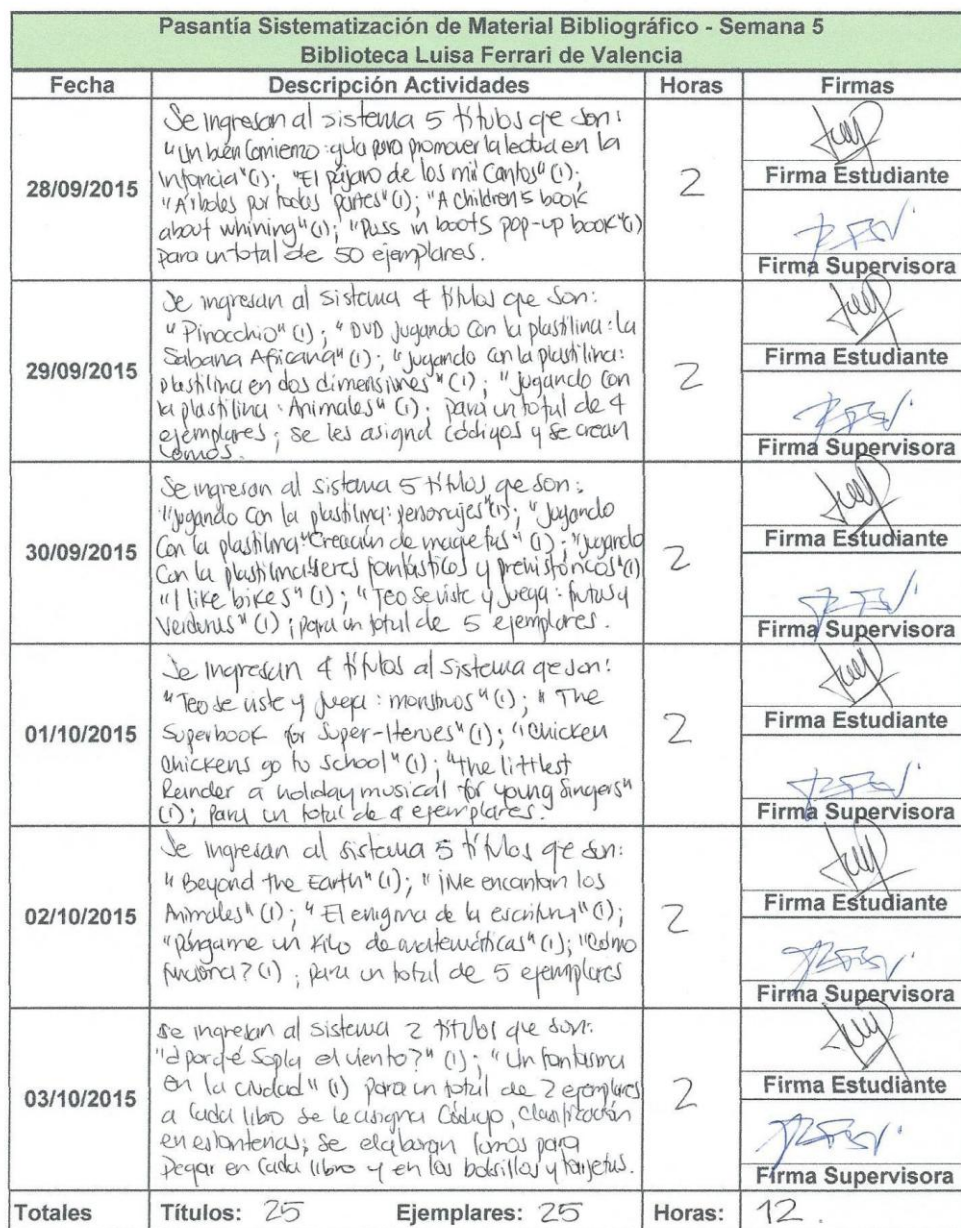 Pasantía Sistematización de Material Bibliográfico - Semana 5
Biblioteca Luisa Ferrari de Valencia
Fecha Descripción Actividades Horas Firmas
28/09/2015
Se ingresan al sistema 5 títulos que son:
"Un buen comienzo: guía para promover la lectura en la
infancia" (1); "El pájaro de los mil cantos" (1);
"Árboles por todas partes" (1); "A children's book
about whining" (1); "Puss in boots pop-up book" (1)
para un total de 50 ejemplares.
2
Firma Estudiante
Firma Supervisora
29/09/2015
Se ingresan al sistema 4 títulos que son:
"Pinocchio" (1); "DVD Jugando con la plastilina: la
Sabana Africana" (1); "jugando con la plastilina:
plastilina en dos dimensiones" (1); "jugando con
la plastilina: Animales" (1); para un total de 4
ejemplares; se les asigna códigos y se crean
lomos.
2
Firma Estudiante
Firma Supervisora
30/09/2015
Se ingresan al sistema 5 títulos que son:
"jugando con la plastilina: personajes" (1); "Jugando
con la plastilina "Creación de" (1); "jugando
con la plastilina seres fantásticos y prehistóricos" (1)
"I like bikes" (1); "Teo se viste y juega: frutas y
verduras" (1); para un total de 5 ejemplares.
2
Firma Estudiante
Firma Supervisora
01/10/2015
Se ingresan 4 títulos al sistema que son:
"Teo se viste y juega: monstruos" (1); "The
Superbook for Super-Heroes" (1); "Chicken
chickens go to school" (1); "the littlest
Reinder a holiday musical for young singers"
(1); para un total de 4 ejemplares.
2
Firma Estudiante
Firma Supervisora
02/10/2015
Se ingresan al sistema 5 títulos que son:
"Beyond the Earth" (1); "¡Me encantan los
Animales" (1); "El enigma de la escritura" (1);
"Póngame un kilo de matemáticas" (1); "Cómo
funciona? (1); para un total de 5 ejemplares
2
Firma Estudiante
Firma Supervisora
03/10/2015
se ingresan al sistema 2 títulos que son:
"¿por qué sopla el viento?" (1); "Un fantasma
en la ciudad" (1) para un total de 2 ejemplares
a cada libro se le asigna código, clasificación
en estanterías; se elaboran lomos para
pegar en cada libro y en los bolsillos y tarjetas.
2
Firma Estudiante
Firma Supervisora
Totales Títulos: 25 Ejemplares: 25 Horas: 12.